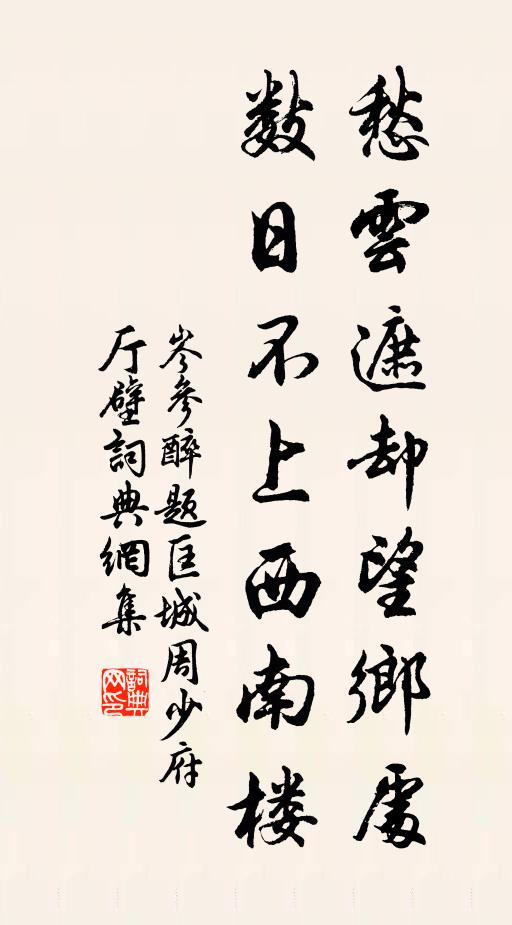 愁雲遮却望鄉處
数日不上西南楼
岑參醉题匡城周少府
厅壁詞典網集
詞典网印